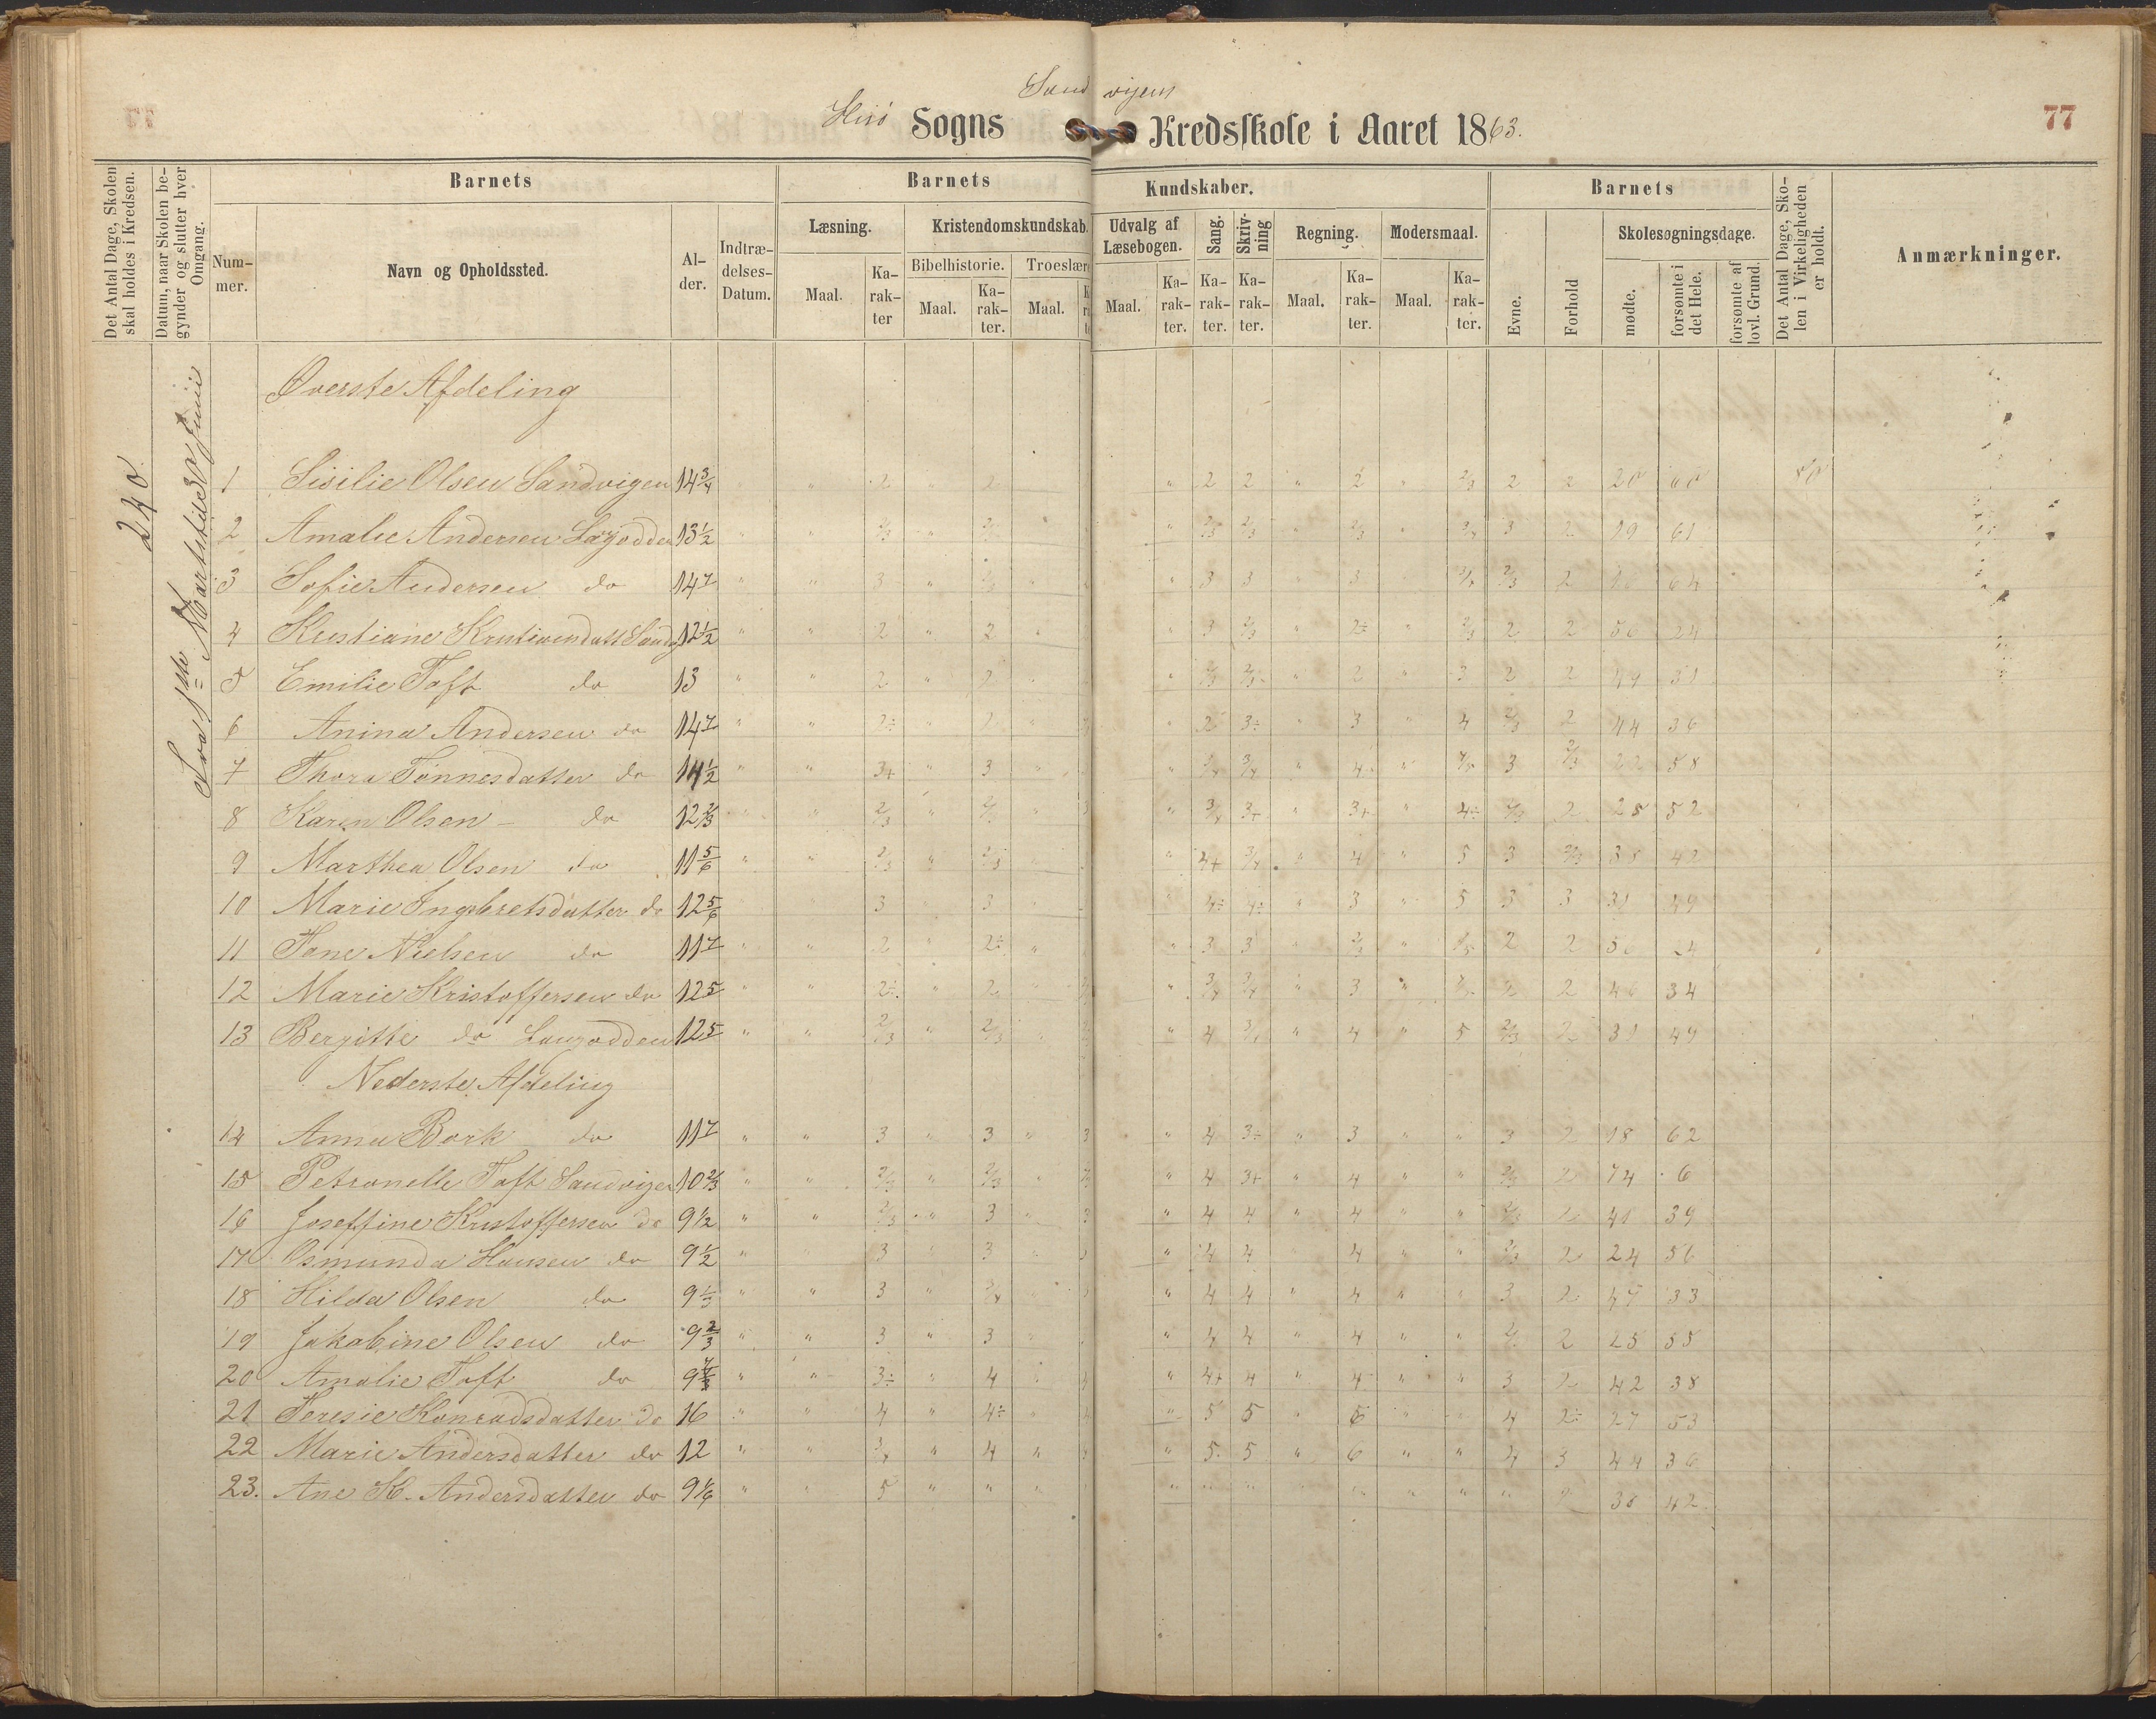 Sandvigens
Hisø Sogns Kredsskole i Aaret 1863.
77
Det Antal Dage, Skolen skal holdes i Kredsen.
Datum, naar Skolen begynder og slutter hver Omgang.
Barnets
Nummer.
Navn og Opholdssted.
Alder.
Indtrædelses-Datum.
Barnets Kundskaber.
Læsning.
Maal.
Karakter
Kristendomskundskab.
Bibelhistorie.
Maal.
Karakter.
Troeslære
Maal.
Udvalg af Læsebogen.
Maal.
Karakter.
Sang.
Karakter.
Skrivning
Karakter.
Regning.
Maal.
Karakter.
Modersmaal.
Maal.
Karakter.
Barnets
Evne.
Forhold
Skolesøgningsdage.
mødte.
forsømte i det Hele.
forsømte af lovl. Grund.
Det Antal Dage, Skolen i Virkeligheden er holdt.
Anmærkninger.
240
Fra 1ste Marts til 30 Juni
Øverste Afdeling
1 Sisilie Olsen Sandvigen 14 3/4 " 2 " 2 " 2 2 " 2 " 2/3 2 2 20 60 80
2 Amalie Andersen 13 1/2 " " 2/3 " 2/3 " 2/3 2/3 " 2/3 " 3/4 3 2 19 61
3 Sofie Andersen do 14 " " 3 " " 3 3 3 3/4 2/3 2 16 64
4 Kristiane 12 1/2 " " 2 " 2 " 3 2/3 " 2÷ " 2/3 2 2 56 24
5 Emilie Toft do 13 " " 2 " 2 " 2/3 " 2 " 3 2 2 49 31
6 Anina Andersen do 14 " " 2÷ " 2 " 2 3÷ " 3 " 4 2/3 2 44 36
7 Thora Tønnesdatter do 14 1/2 " " 3+ " 3 " 3/4 3/4 " 4 " 4/5 3 2/3 22 58
8 Karen Olsen do 12 2/3 " " 2/3 " 2/3 " 3/4 3+ " 3+ " 4÷ 2/3 2 28 52
9 Marthea Olsen do 11 5/6 " " 2/3 " 2/3 " 4+ 3/4 " 4 " 5 3 2/3 38 42
10 Marie Ingebretsdatter do 12 5/6 3 3 4÷ 4÷ 3 " 5 3 3 31 49
11 Tone Nielsen do 11 " " 2 " 2÷ " " 3 3 " 2/3 " 2 2 56 24
12 Marie Kristoffersen do 12 5 " " 2÷ " 2 " 3/4 3/4 " 3 " 2 2 46 34
13 Bergitte do Langodden 12 5 " " 2/3 " 2/3 " 4 3/4 " 4 " 5 2/3 2 31 49
Nederste Afdeling
14 Anna Bork do 11 " " 3 " 3 " 3 " 4 3÷ " 3 " " 3 2 18 62
15 Petronelle Toft Sandvigen 10 2/3 " " 2/3 " 2/3 " " 4 3+ " 4 " " 2/3 2 74 6
16 Joseffine Kristoffersen do 9 1/2 " " 2/3 " 3 " 3 " 4 4 " 4 " " 2/3 2 41 39
17 Osmunda Hansen do 9 1/2 " 3 " 3 " 4 4 4 " " 2/3 2 24 56
18 Hilda Olsen do 9 1/3 " " 3 " 3/4 " 4 4 " 4 " " 3 2 47 33
19 Jakobine Olsen do 9 2/3 " " 3 " 3 " 4 4 " 4 " " 2 25 55
20 Amalie Toft do 9 " " 3÷ " 4 " " 4+ 4 " 4 " " 3 2 42 38
21 Teresie Konradsdatter do 16 " " 4 " 4÷ " " 5 5 " 6 " 4 2÷ 27 53
22 Marie Andersdatter do 12 " " 3/4 " 4 " " 5 5 " 6 " " 4 3 44 36
23. Ane H. Andersdatter do 9 1/6 " " 5 " " " " " " " " " " " 38 42